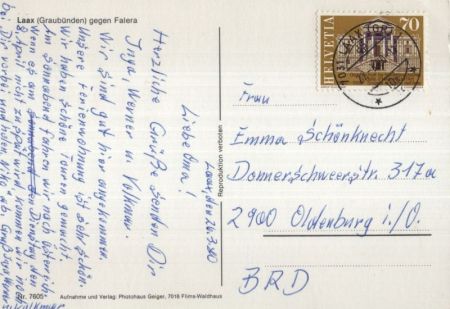 Laax (Graubünden) gegen Falera
Laax, den 26.3.80
Liebe Oma!
Herzliche Grüße senden Dir
Inga, Werner u. Volkmar.
Wir sind gut hier angekommen.
Unsere Ferienwohnung ist sehr schön.
Wir haben schöne Touren gemacht
Am Sonnabend fahren wir nach
Wenn es am Dienstag den
nicht zu spät wird kommen wir noch
bei Dir vorbei und holen
Nr. 7605
Aufnahme und Verlag: Photohaus Geiger, 7018 Flims-Waldhaus
Reproduktion verboten
HELVETIA
70
LAAX
Frau
Emma Schönknecht
Donnerschweerstr. 317a
2900 Oldenburg i./O.
BRD